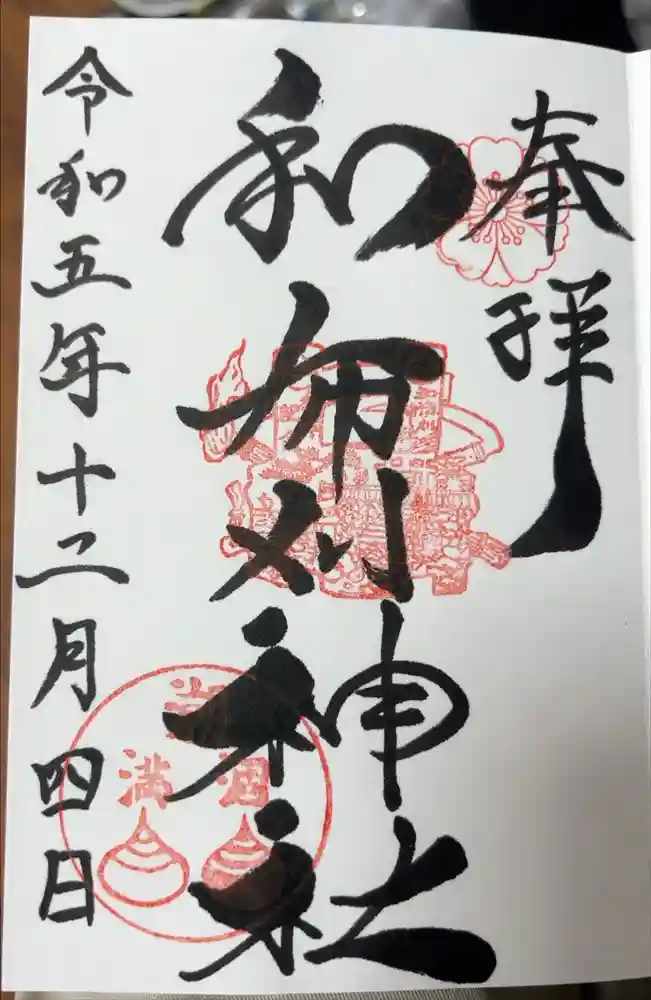 奉拝
和布刈神社
令和五年十二月四日
潮
満 涸